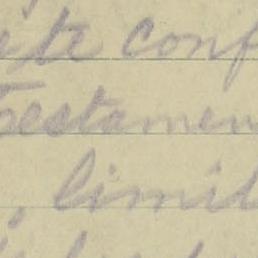 ite conf
estamen
, limit